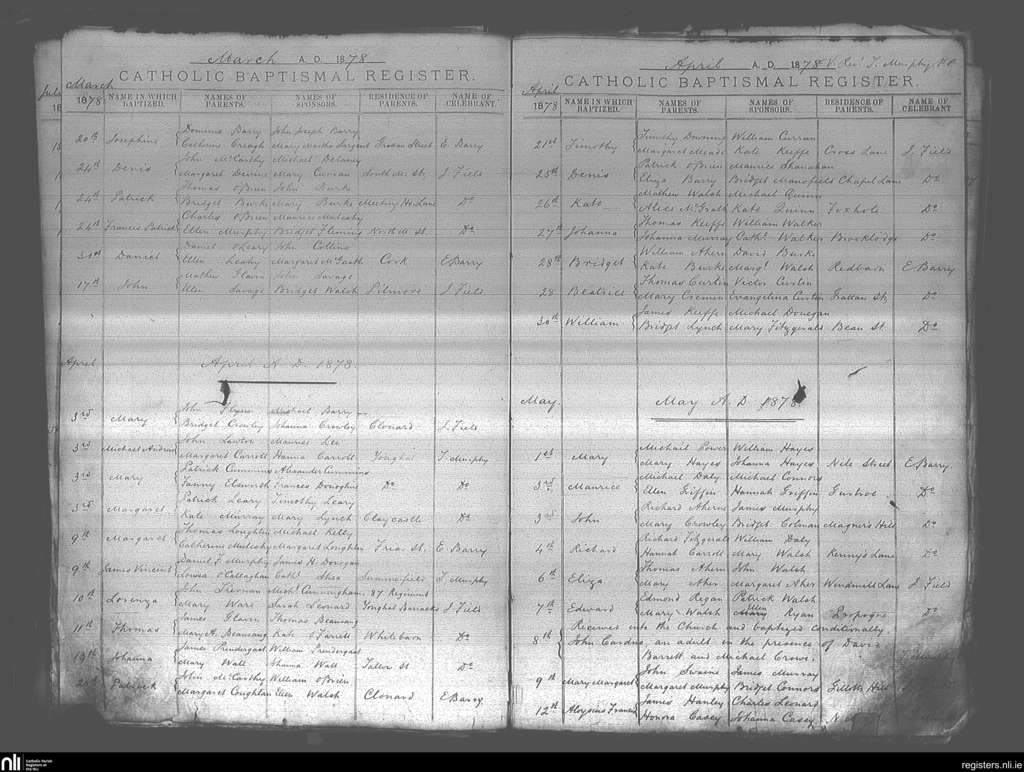 March A. D. 1878
CATHOLIC BAPTISMAL REGISTER.
March 1878 NAME IN WHICH BAPTIZED. NAMES OF PARENTS. NAMES OF SPONSORS. RESIDENCE OF PARENTS. NAME OF CELEBRANT.
Dominic Barry John Joseph Barry
20th Josephine Catherine Creagh Mary Martha Sargent Grattan Street E. Barry
John McCarthy Michael Delaney
24th Denis Margaret Devine Mary Curran South M. St. J. Field
Thomas O'Brien John Burke
24th Patrick Bridget Burke Mary Burke Meeting Ho. Lane Do
Charles O'Brien Maurice Mulcahy
24th Francis Patrick Ellen Murphy Bridget Fleming North M. St. Do
Daniel O'Leary John Collins
31st Daniel Ellen Leahy Margaret McGrath Cork E Barry
Mathew Glavin John Savage
17th John Ellen Savage Bridget Walsh J. Field
April April A. D. 1878.
John Flynn Michael Barry
3rd Mary Bridget Crowley Johanna Crowley Clonard J. Field
John Lawton Maurice Lee
3rd Michael Andrew Margaret Carroll Hanna Carroll Youghal T. Murphy
Patrick Cummins Alexander Cummins
3rd Mary Fanny Donoghue Do Do
Patrick Leary Timothy Leary
3rd Margaret Kate Murray Mary Lynch Claycastle Do
Thomas Loughlin Michael Kelly
9th Margaret Catherine Mulcahy Margaret Loughlin Friar St. E. Barry
Daniel F. Murphy James H. Donegan
9th James Vincent Louisa O'Callaghan Cath. Shea Summerfield T. Murphy
John Michl Cunningham 87 Regiment
10th Lorenza Mary Ware Sarah Leonard Youghal Barracks J Field
James Glavin Thomas Beausang
11th Thomas Mary A. Beausang Kate Whitebarn Do
James Prendergast William Prendergast
19th Johanna Mary Wall Hanna Wall St Do
John McCarthy William O'Brien
21st Patrick Margaret Coughlan Ellen Walsh Clonard E Barry
April A. D. 1878 V. Revd T. Murphy P.P.
CATHOLIC BAPTISMAL REGISTER.
April 1878 NAME IN WHICH BAPTIZED. NAMES OF PARENTS. NAMES OF SPONSORS. RESIDENCE OF PARENTS. NAME OF CELEBRANT
Timothy Dunning William Curran
21st Timothy Margaret Meade Kate Keeffe Cross Lane J. Field
Patrick O'Brien Maurice Shanahan
25th Denis Eliza Barry Bridget Mansfield Chapel Lane Do
Mathew Walsh Michael Quinn
26th Kate Alice McGrath Kate Quinn Foxhole Do
Thomas Keeffe William Walker
27th Johanna Johanna Murray Cath. Walker Brooklodge Do
William Ahern David Burke
28th Bridget Kate Burke Margt Walsh Redbarn E Barry
Thomas Curtin Victor Curtin
28 Beatrice Mary Cremen Evangelina Curtin Grattan St. Do
James Keeffe Michael Donegan
30th William Bridget Lynch Mary Fitzgerald Beau St. Do
May May A. D. 1878
Michael Power William Hayes
1st Mary Mary Hayes Johanna Hayes Nile Street E Barry
Michael Daly Michael Connors
3rd Maurice Ellen Griffin Hannah Griffin Gurtroe Do
Richard Aherne James Murphy
3rd John Mary Crowley Bridget Colman Magners Hill Do
Richard Fitzgerald William Daly
4th Richard Hannah Carroll Mary Walsh Kenny's Lane Do
Thomas Ahern John Walsh
6th Eliza Mary Aher Margaret Aher Windmill Lane J. Field
Edmond Regan Patrick Walsh
7th Edward Mary Walsh Ellen Ryan Do
Received into the Church and baptized conditionally
8th John an adult in the presence of David
Barrett and Michael Crowe.
John Swaine James Murray
9th Mary Margaret Margaret Murphy Bridget Connors Hill
James Hanley Charles Leonard
12th Aloysius Francis Honora Casey Johanna Casey
nli
Catholic Parish Registers at the NLI
registers.nli.ie